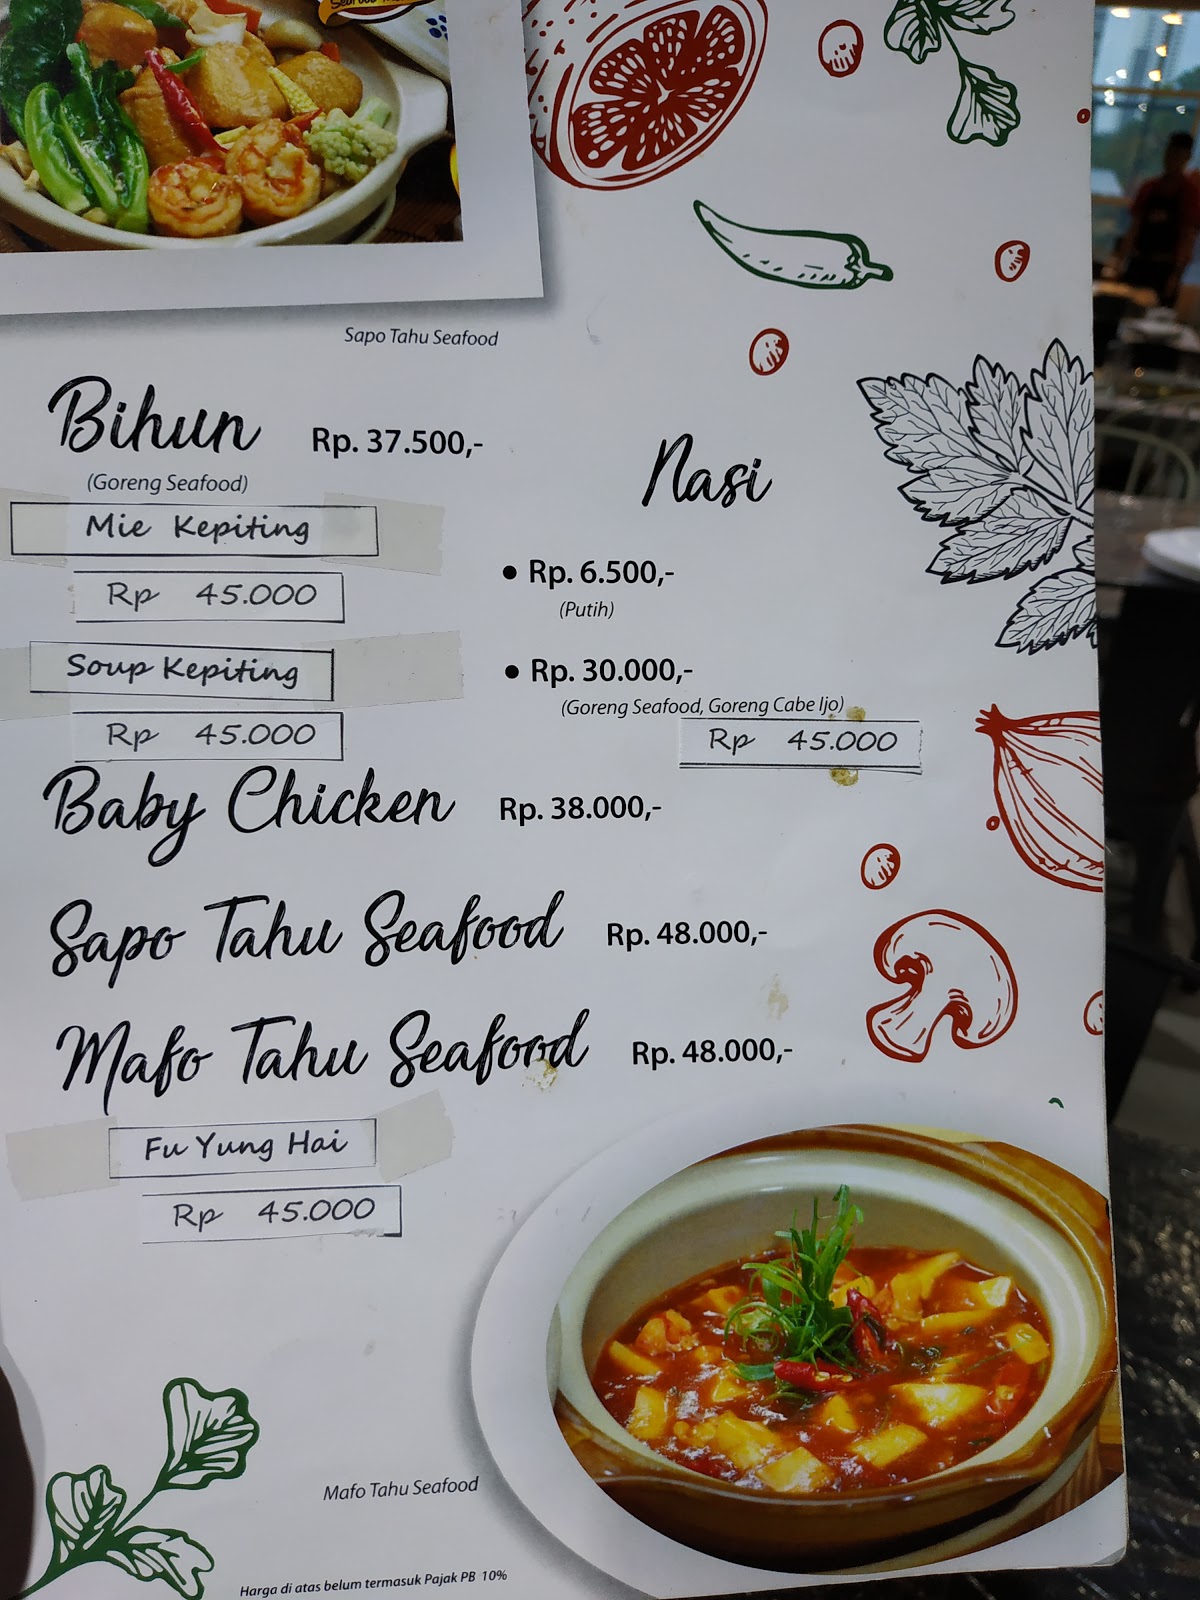 Sapo Tahu Seafood
Bihun Rp. 37.500,-
(Goreng Seafood)
Mie Kepiting
Rp 45.000
Soup Kepiting
Rp 45.000
Nasi
• Rp. 6.500,-
(Putih)
• Rp. 30.000,-
(Goreng Seafood, Goreng Cabe Ijo)
Rp 45.000
Baby Chicken Rp. 38.000,-
Sapo Tahu Seafood Rp. 48.000,-
Mafo Tahu Seafood Rp. 48.000,-
Fu Yung Hai
Rp 45.000
Mafo Tahu Seafood
Harga di atas belum termasuk Pajak PB 10%